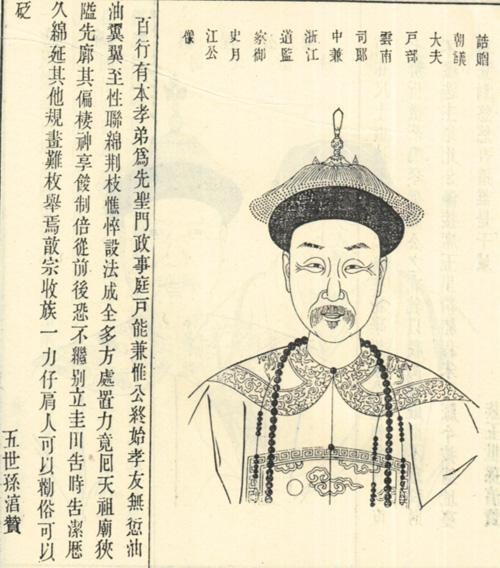 誥贈
朝議
大夫
戶部
雲南
司郎
中兼
浙江
道監
察御
史月
江公
像
百行有本孝弟爲先聖門政事庭戶能兼惟公終始孝友無愆油
油翼翼至性聯綿荆枝憔悴設法成全多方處置力竟囘天祖廟狹
隘先廓其偏棲神享餕制倍從前後恐不繼别立圭田吿時吿潔歷
久綿延其他規畫難枚舉焉敬宗收族一力仔肩人可以勸俗可以
砭
五世孫湻贊